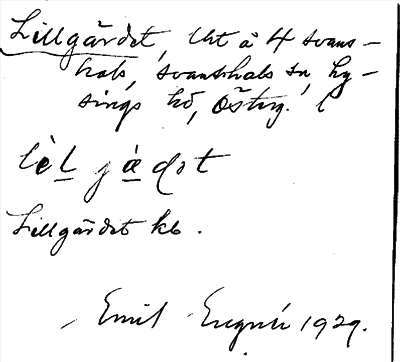 Lillgärdet, lht å 4 svans-
hals, svanshals sn, hy-
sings hd, Östg. l
lèl jædət
Lillgärdet kb.
Emil 1929.